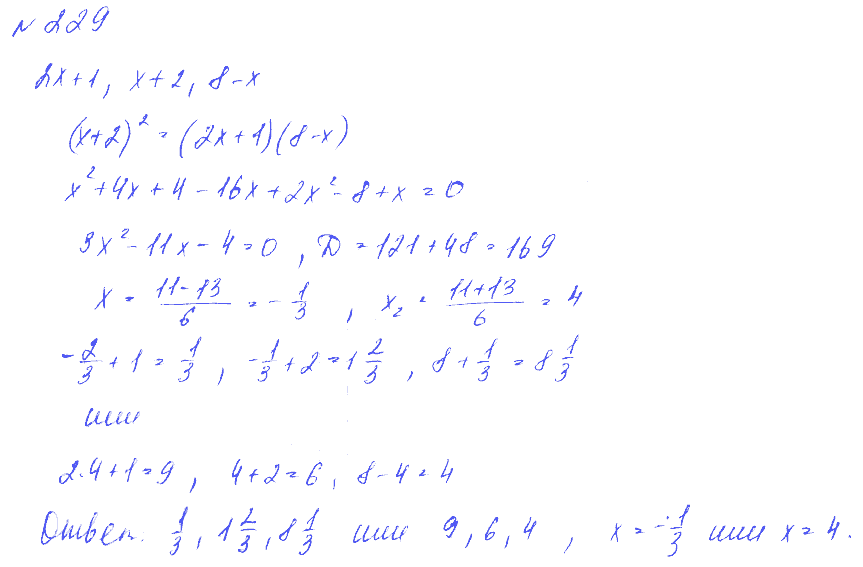 № 229
2x+1, x+2, 8-x
(x+2)² = (2x+1)(8-x)
x²+4x+4-16x+2x²-8+x=0
3x²-11x-4=0, D=121+48=169
x = (11-13)/6 = -1/3, x₂ = (11+13)/6 = 4
-2/3+1=1/3, -1/3+2=1 2/3, 8+1/3=8 1/3
или
2·4+1=9, 4+2=6, 8-4=4
Ответ. 1/3, 1 2/3, 8 1/3 или 9, 6, 4, x=-1/3 или x=4.